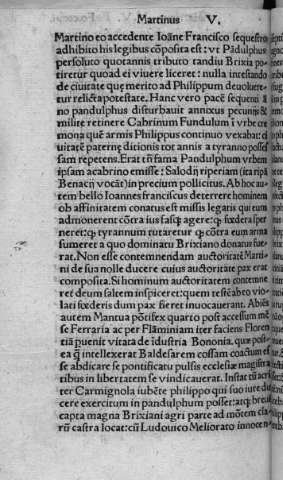 Martinus V.
Martino eo accedente Ioãne Francisco sequestro
adhibito his legibus cõposita est: vt Pãdulphus
persoluto quotannis tributo tandiu Brixia po-
tiretur quoad ei viuere liceret: nulla intestando
de ciuitate quę merito ad Philippum deuolueretur
relicta potestate. Hanc vero pacē sequenti ãno
pandulphus disturbauit annixus pecunijs &
milite retinere Cabrinum Fundulum i vrbe cre
mona quē armis Philippus continuo vexabat: ci
uitatē paternę ditionis tot annis a tyranno posses
sam repetens. Erat tñ fama Pandulphum vrbem
ipsam acabrino emisse: Salodij riperiam (ita ripã
Benaci vocãt) in precium pollicitus. Ab hoc au-
tem bello Ioannes franciscus deterrere hominem
ob affinitatem conatus est missis legatis qui eum
admonerent cõtra ius fasq; agere: q̱ fœdera sper
neret: q̱ tyrannum tutaretur q̱ cõtra eum arma
sumeret a quo dominatu Brixiano donatus fue-
rat. Non esse contemnendam auctoritatē Marti-
ni de sua nolle ducere cuius auctoritate pax erat
composita. Si hominum auctoritatem contemne
ret deum saltem inspiceret: quem testē ab eo vio-
lati fœderis dum pax fieret inuocauerant. Abiēs
autem Mantua põtifex quarto post accessum mē
se Ferraria ac per Flãminiam iter faciens Floren
tiã puenit vitata de īdustria Bononia. quæ post
ea q̱ intellexerat Baldesarem cossam coactum es
se abdicare se pontificatu pulsis ecclesiæ magistra
tibus in libertatem se vindicauerat. Instat tū acri
ter Carmignola iubēte philippo qui suo iure du
cere exercitum in pandulphum posset: atq; breui
capta magna Brixiani agri parte ad mõtem cla-
rū castra locat: cū Ludouico Meliorato